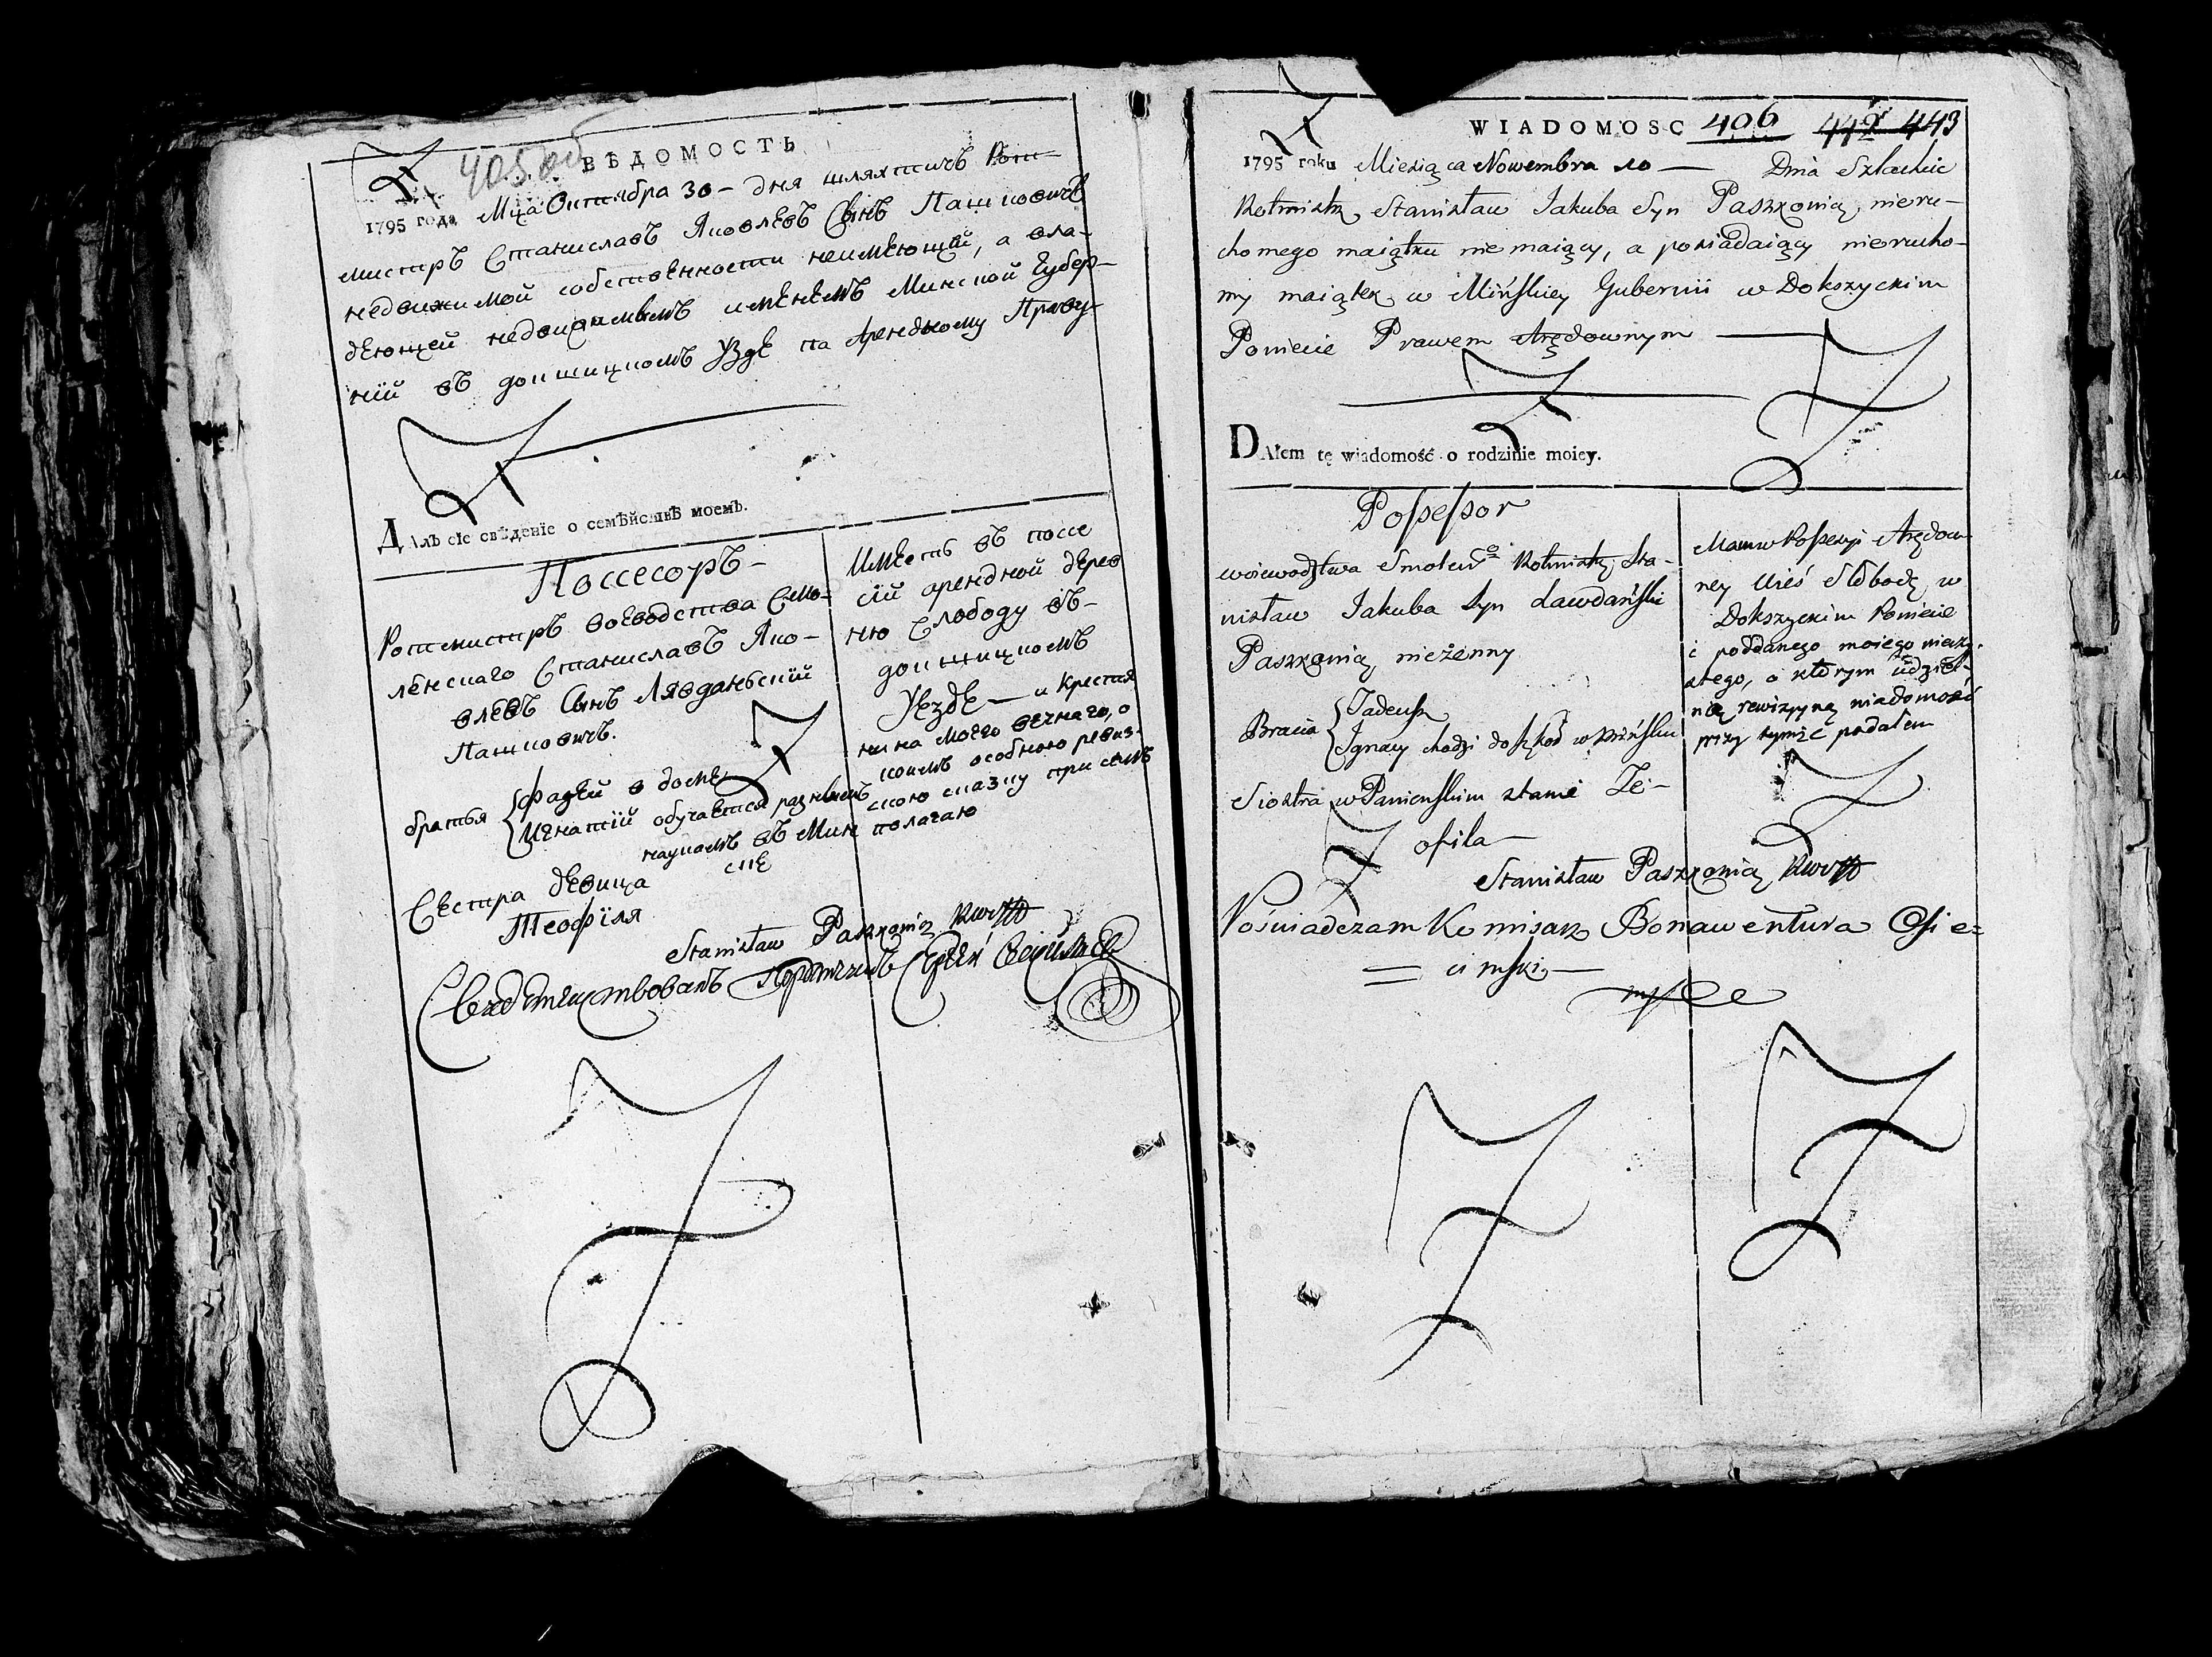 405 об
ВѢДОМОСТЬ
1795 года Мца Октября 30 – дня шляхтичъ Рот–
мистръ Станиславъ Яковлевъ Сынъ Пашковичъ
недвижимой собственности неимеющей, а вла–
деющей недвижимымъ именемъ Минской Губер–
ній въ докшицкомъ Уздѣ па Арендному Праву
ДАлъ сіе свѣденіе о семѣйствѣ моемъ.
Поссесоръ –
Ротмистръ воеводства Смо–
ленскаго Станиславъ Яко–
влевъ Сынъ Лявданьскій
Пашковичъ.
братья { Фадей в доме
Игнатій обучается разнымъ
наукомъ въ Мин
скѣ
Сестра девица
Теофіля
Имѣетъ въ поссе
сій арендной дерев
ню Слободу въ–
докшицкомъ
Уѣзде – и крестья
нина моего вечнаго, о
коемъ особною ревиз–
скою сказку при семъ
полагаю
Stanisław Paszkowicz RwS
Свидетелствовалъ Порутчикъ Сергей
406 442 443
WIADOMOSC
1795 roku Miesiąca Nowembra 10 — Dnia Szlachcic
Rotmistz Stanisław Jakuba Syn Paszkowicz nieru–
chomego maiątku nie maiący, a posiadaiący nierucho–
my maiątek w Mińskiey Gubernii w Dokszyckim
Powiecie Prawem Arędownym
DAłem tę wiadomość o rodzinie moiey.
Possessor
woiewodztwa Smoleńo Rotmistz Sta–
nisław Jakuba Syn Lawdański
Paszkowicz nieżenny
Bracia { Tadeusz
Ignacy chodzi do szkoł w Mińsku
Siostra w Panieńskim stanie Te–
ofila
Mam w Possesyi Arędow–
ney Wieś Słobodę w
Dokszyckim Powiecie
i poddanego moiego wieczy–
stego, o ktorym udziel–
ną rewizyyną wiadomość
przy tymże podałem
Stanisław Paszkowicz RwS
Poświadczam Komisarz Bonawentura Osie=
= cimski –